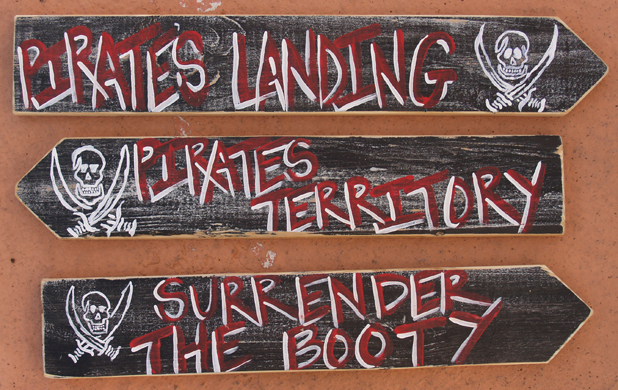 PIRATE'S LANDING
PIRATES
TERRITORY
SURRENDER
THE BOOTY